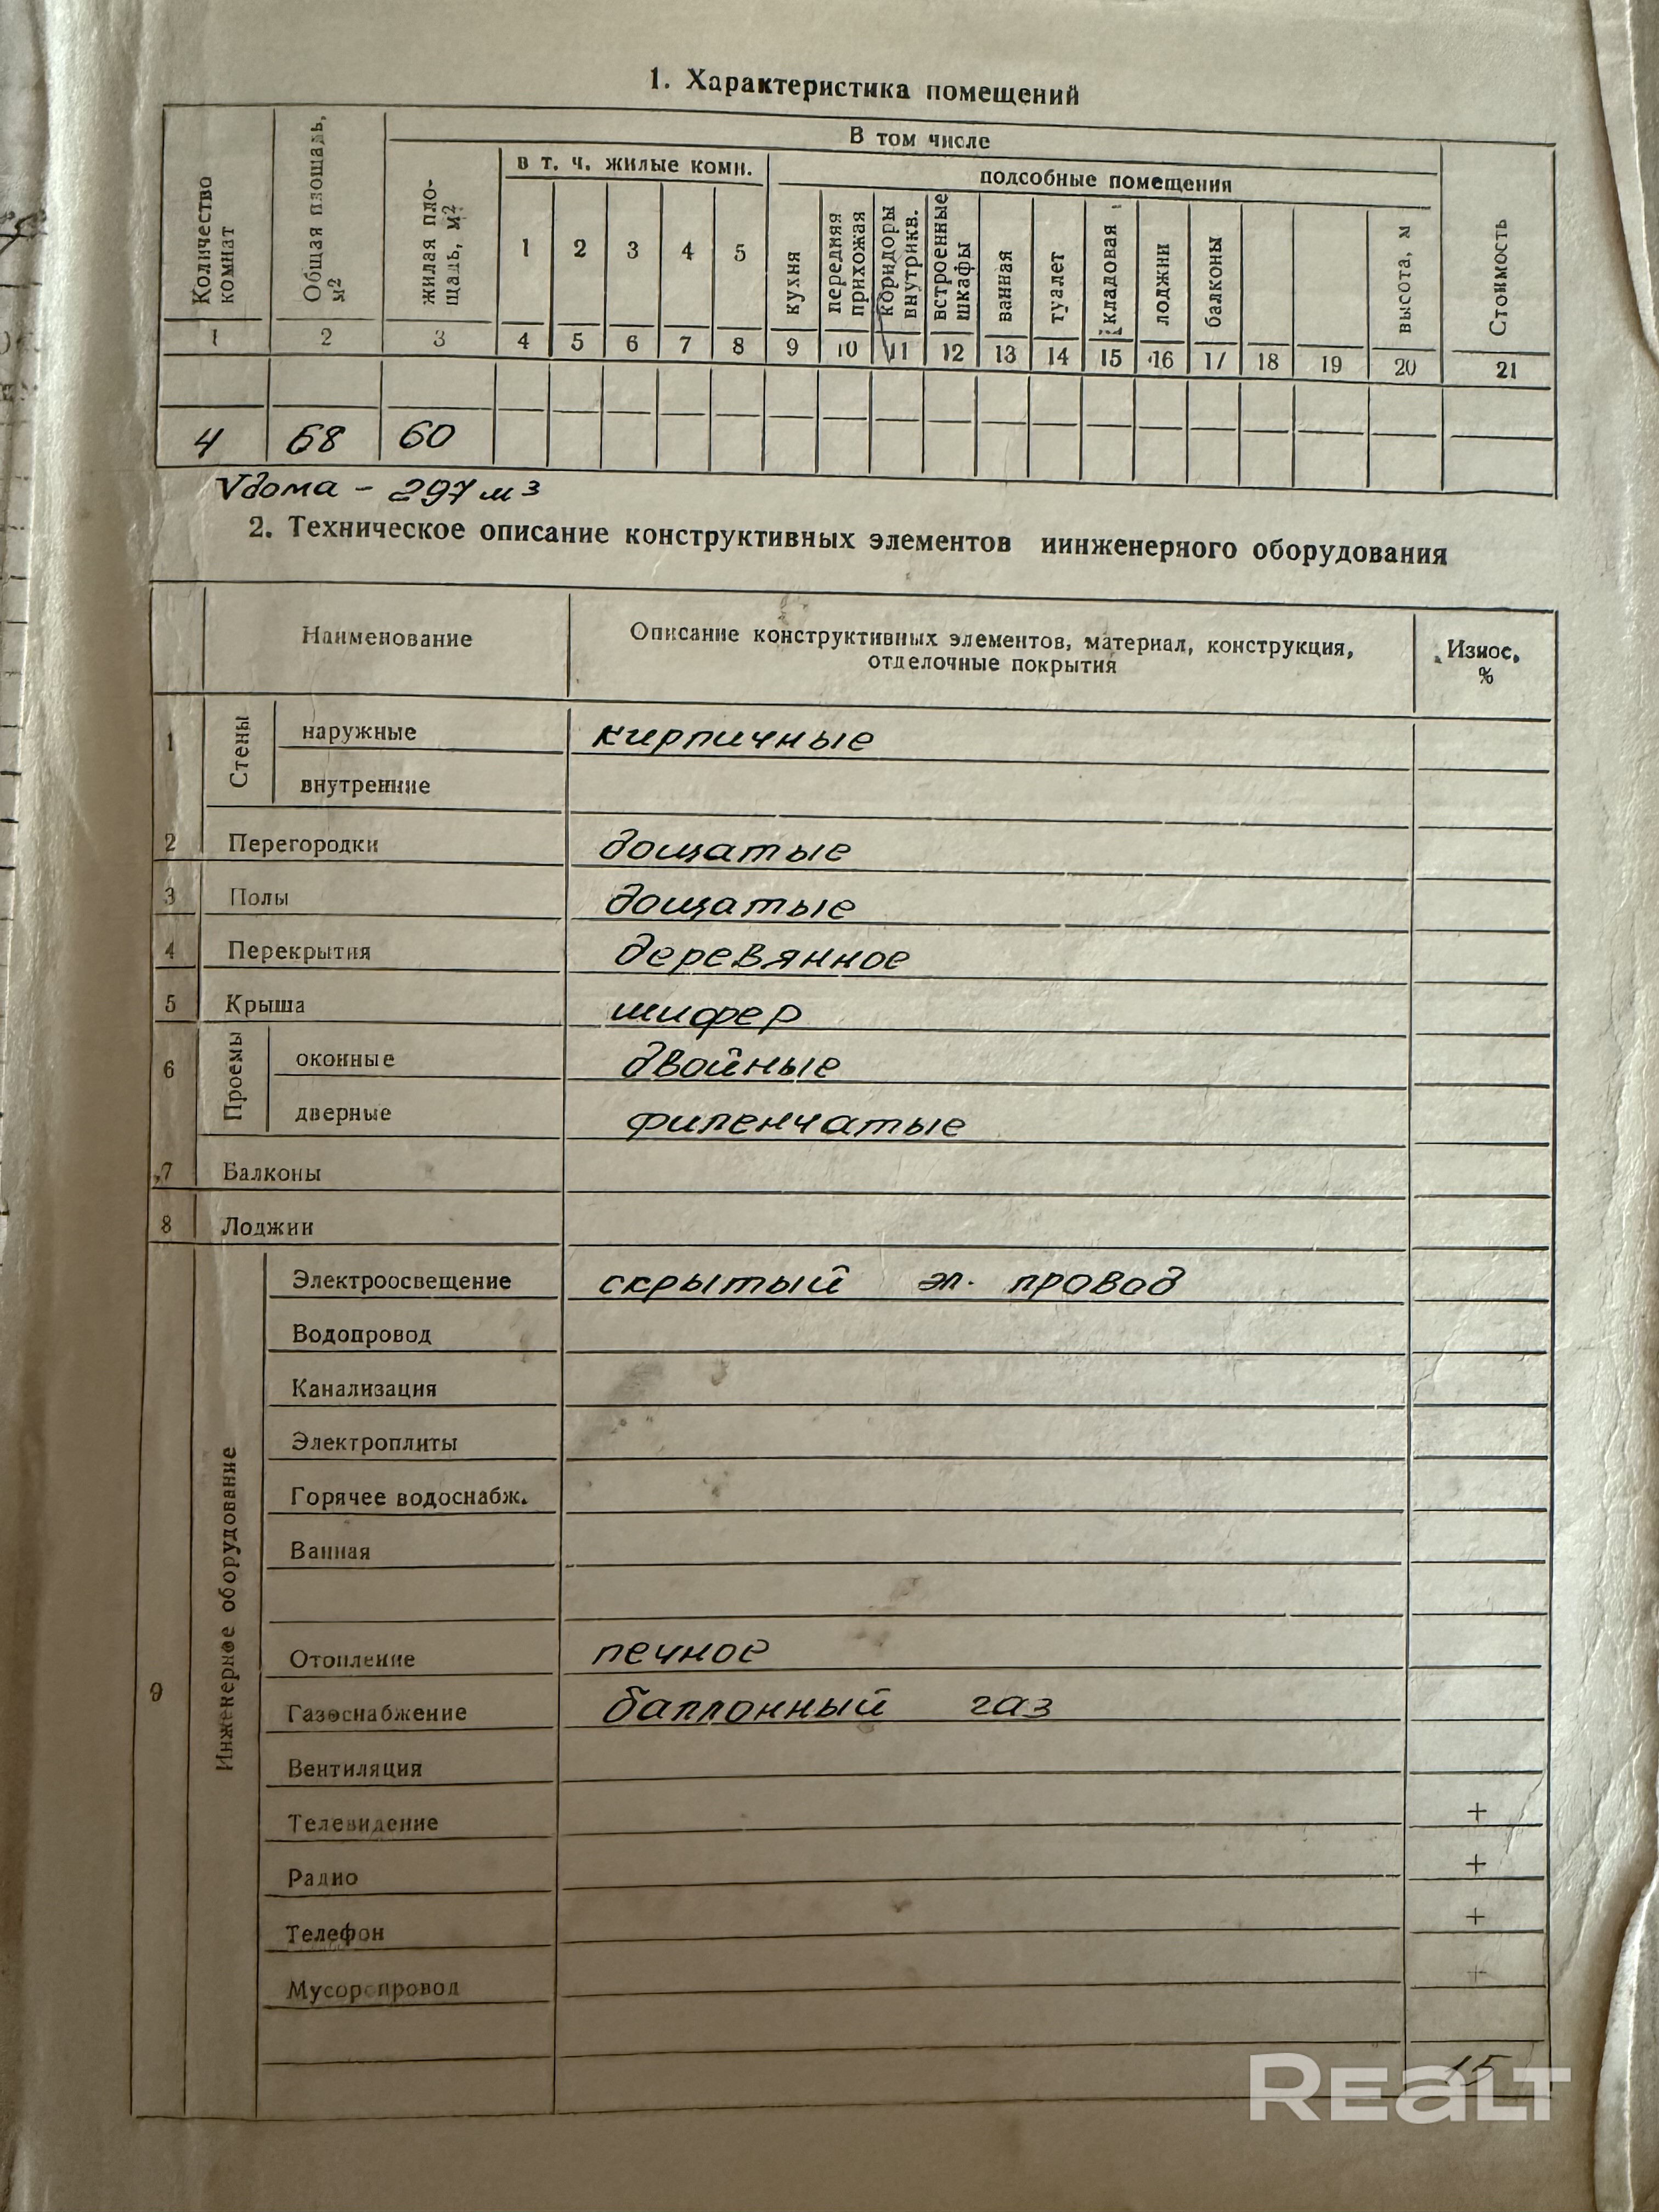 1. Характеристика помещений
Количество комнат
Общая площадь, м²
В том числе
жилая пло-
щадь, м²
в т. ч. жилые комн.
подсобные помещения
1 2 3 4 5
кухня
передняя прихожая
коридоры внутрикв.
встроенные шкафы
ванная
туалет
кладовая
лоджии
балконы
высота, м
Стоимость
1 2 3 4 5 6 7 8 9 10 11 12 13 14 15 16 17 18 19 20 21
4 68 60
Vдома - 297 м³
2. Техническое описание конструктивных элементов иинженерного оборудования
Наименование
Описание конструктивных элементов, материал, конструкция,
отделочные покрытия
Износ,
%
1 Стены наружные кирпичные
внутренние
2 Перегородки дощатые
3 Полы дощатые
4 Перекрытия деревянное
5 Крыша шифер
6 Проемы оконные двойные
дверные филенчатые
7 Балконы
8 Лоджии
9 Инженерное оборудование
Электроосвещение скрытый эл. провод
Водопровод
Канализация
Электроплиты
Горячее водоснабж.
Ванная
Отопление печное
Газоснабжение баллонный газ
Вентиляция
Телевидение +
Радио +
Телефон +
Мусоропровод +
15
REaLT